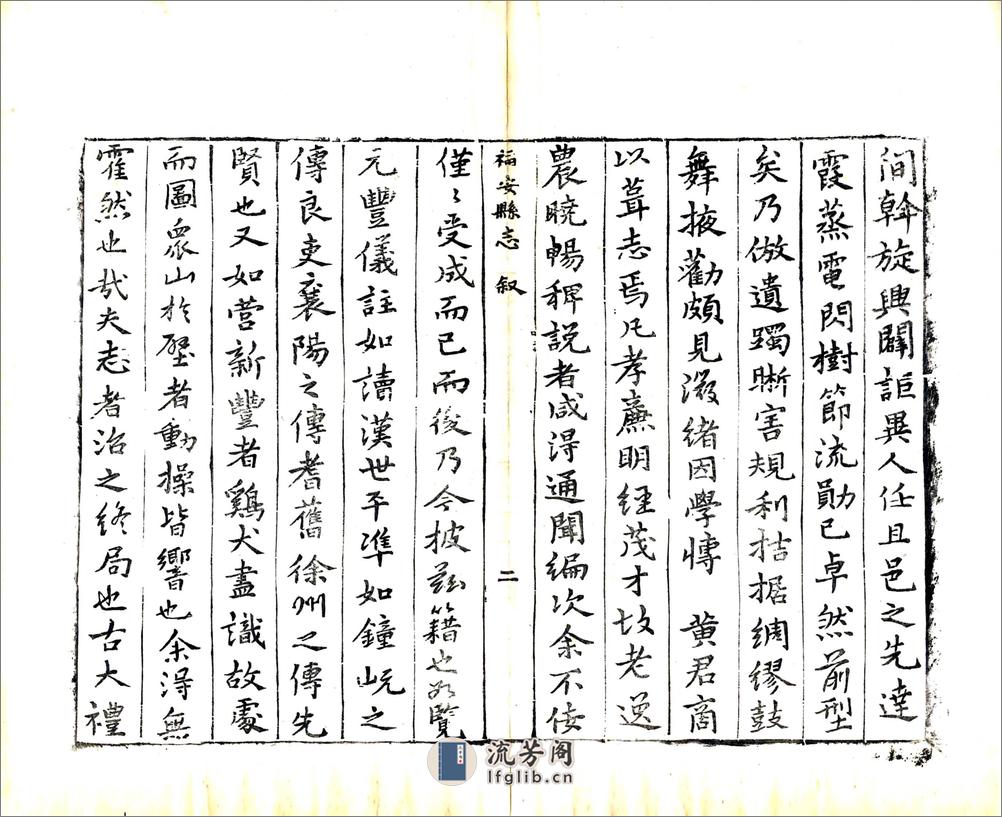 間斡旋興闢詎異人任且邑之先達
霞蒸電閃樹節流勛已卓然前型
矣乃倣遺躅晰害規利拮据綢繆鼓
舞掖勸頗見溵緒因學愽 黄君商
以葺志焉凡孝亷明經茂才坆老逸
農曉暢稗説者咸淂通聞編次余不佞
福安縣志 叙 二
僅〻受成而已而後乃今披兹籍也如覽
元豐儀註如讀漢世平凖如鐘岏之
傳良吏襄陽之傳耆舊徐州之傳先
賢也又如营新豐者鷄犬盡識故處
而圖衆山於壁者動操皆響也余淂無
霍然也㢤夫志者治之终局也古大禮
流芳阁
lfglib.cn